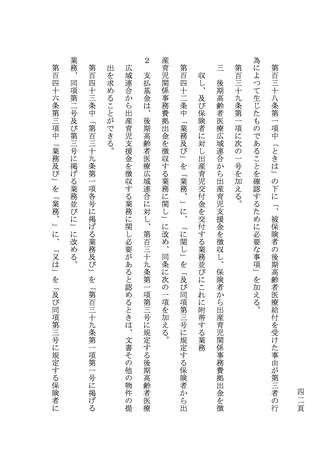 四二頁
第百三十八条第一項中「ときは」の下に「、被保険者の後期高齢者医療給付を受けた事由が第三者の行
為によって生じたものであることを確認するために必要な事項」を加える。
第百三十九条第一項に次の一号を加える。
三　後期高齢者医療広域連合から出産育児支援金を徴収し、保険者から出産育児関係事務費拠出金を徴
収し、及び保険者に対し出産育児交付金を交付する業務並びにこれに附帯する業務
第百四十二条中「業務及び」を「業務、」に、「に関し」を「及び同項第三号に規定する保険者から出
産育児関係事務費拠出金を徴収する業務に関し」に改め、同条に次の一項を加える。
２　支払基金は、後期高齢者医療広域連合に対し、第百三十九条第一項第三号に規定する後期高齢者医療
広域連合から出産育児支援金を徴収する業務に関し必要があると認めるときは、文書その他の物件の提
出を求めることができる。
第百四十三条中「第百三十九条第一項各号に掲げる業務及び」を「第百三十九条第一項第一号に掲げる
業務、同項第二号及び第三号に掲げる業務並びに」に改める。
第百四十六条第三項中「業務及び」を「業務、」に、「又は」を「及び同項第三号に規定する保険者に